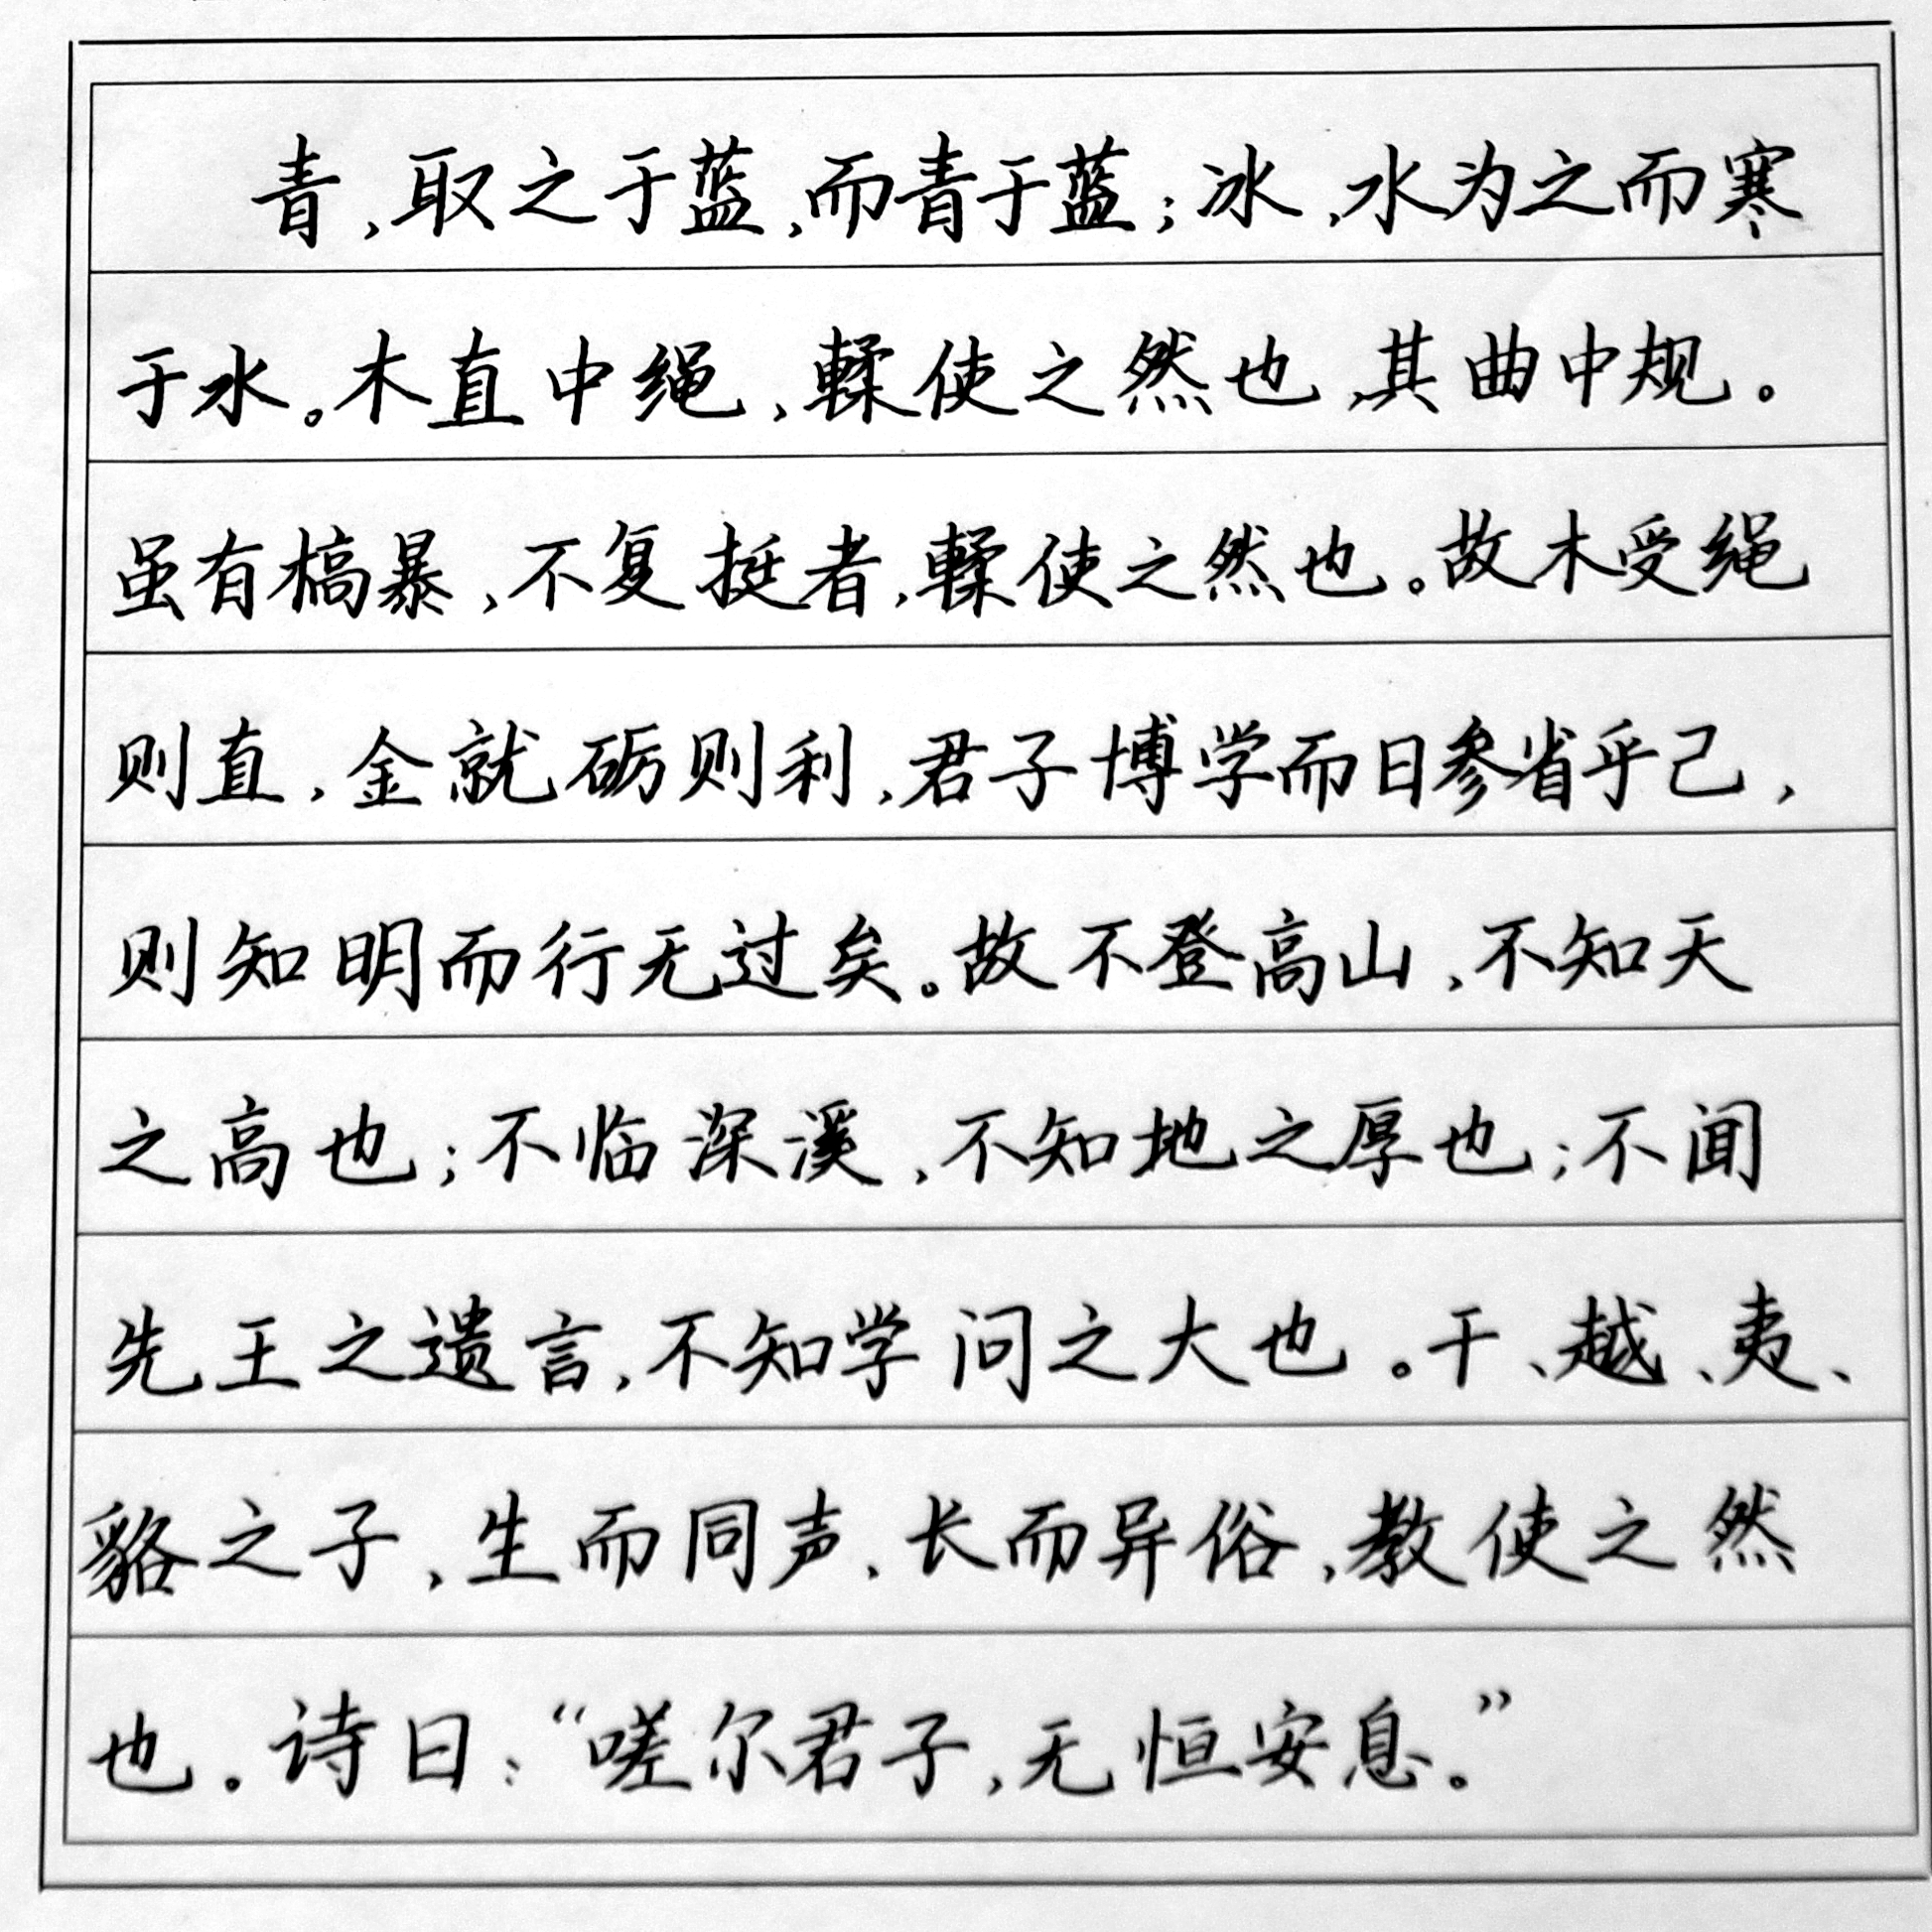 青，取之于蓝，而青于蓝；冰，水为之而寒
于水。木直中绳，輮使之然也，其曲中规。
虽有槁暴，不复挺者，輮使之然也。故木受绳
则直，金就砺则利，君子博学而日参省乎己，
则知明而行无过矣。故不登高山，不知天
之高也；不临深溪，不知地之厚也；不闻
先王之遗言，不知学问之大也。干、越、夷、
貉之子，生而同声，长而异俗，教使之然
也。诗曰：“嗟尔君子，无恒安息。”